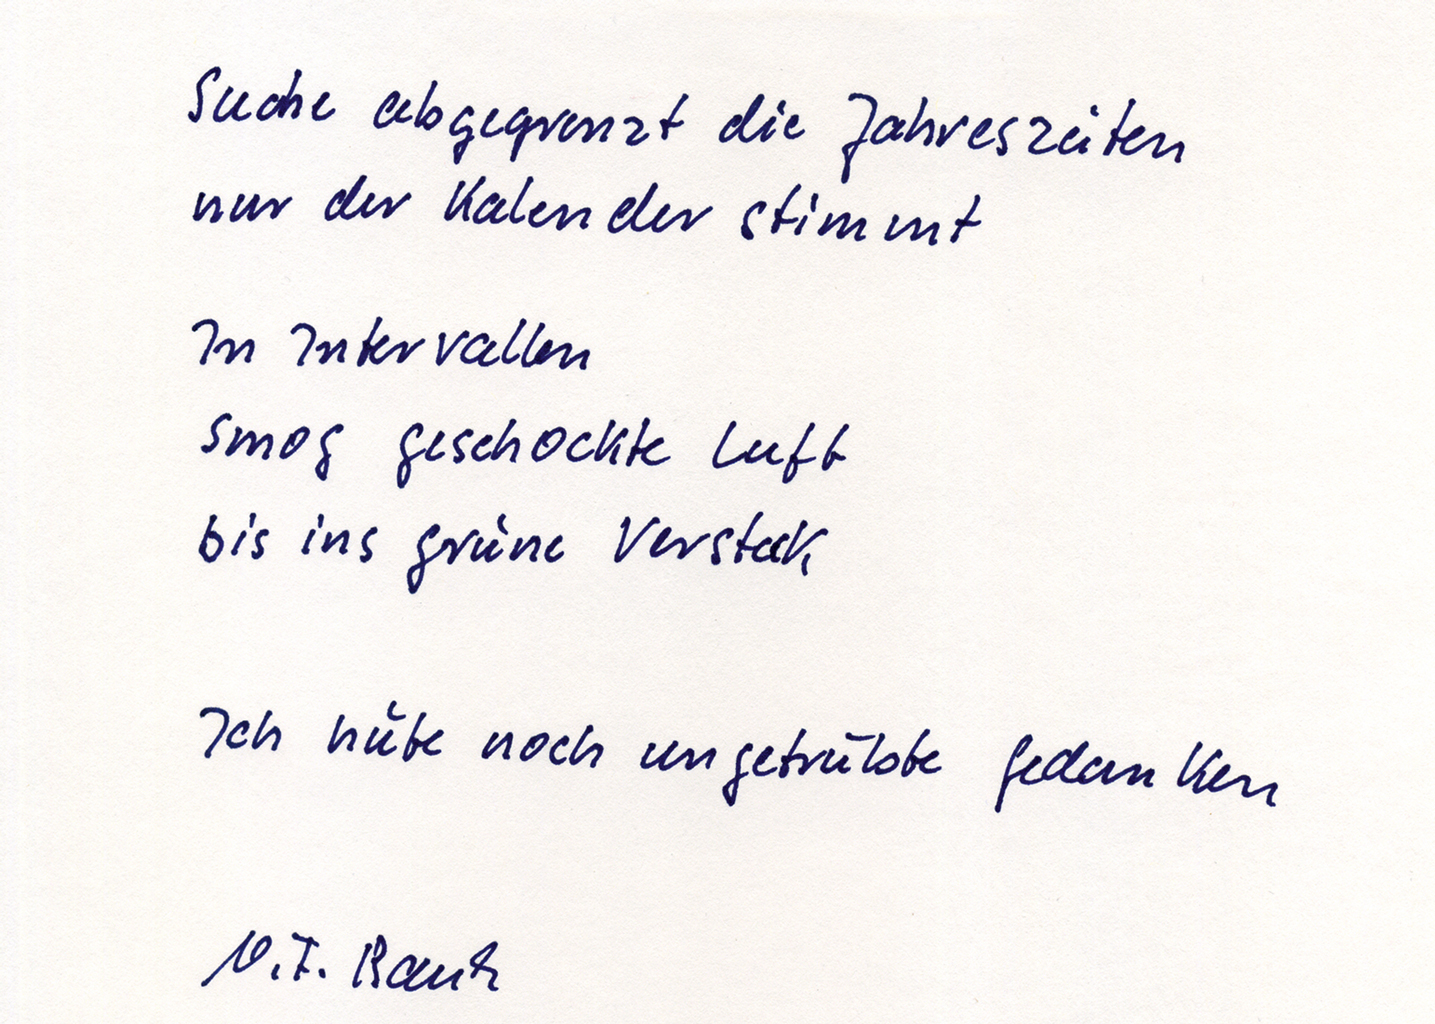 Suche abgegrenzt die Jahreszeiten
nur der Kalender stimmt
In Intervallen
smog geschockte Luft
bis ins grüne Versteck
Ich hüte noch ungetrübte Gedanken